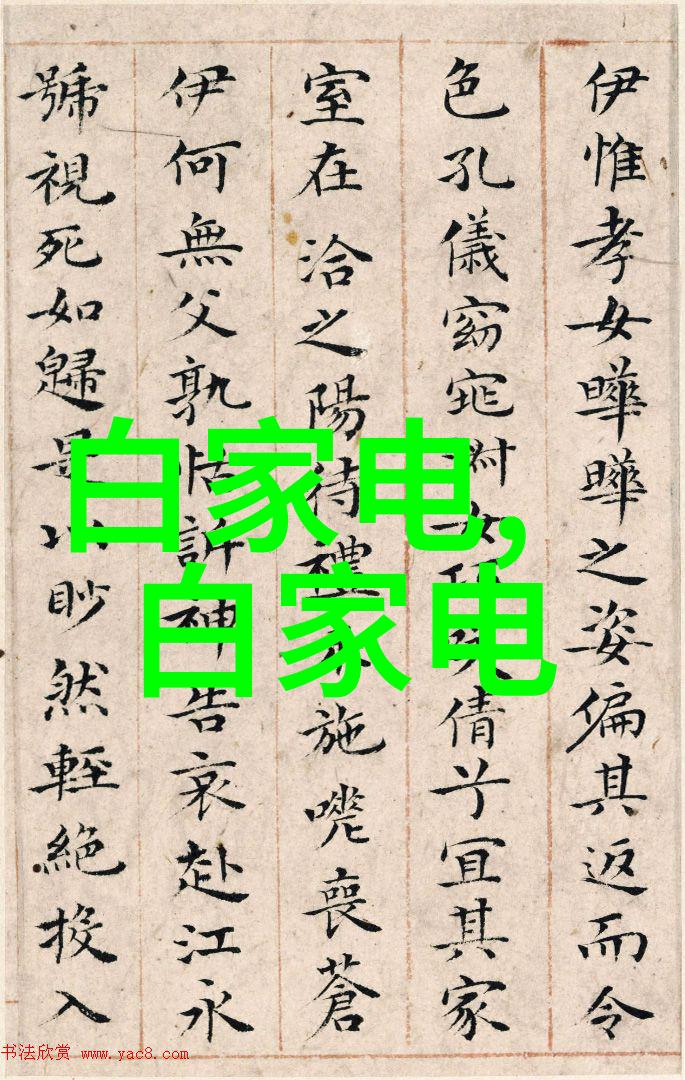 伊惟孝女曄曄之姿偏其返而令
色孔儀窈窕女倩兮宜其家
室在洽之陽待禮施喪蒼
伊何無父孰怙訴神告哀赴江永
號視死如歸是以眇然輕絕投入
白家电,
白家电
书法欣赏 www.yac8.com